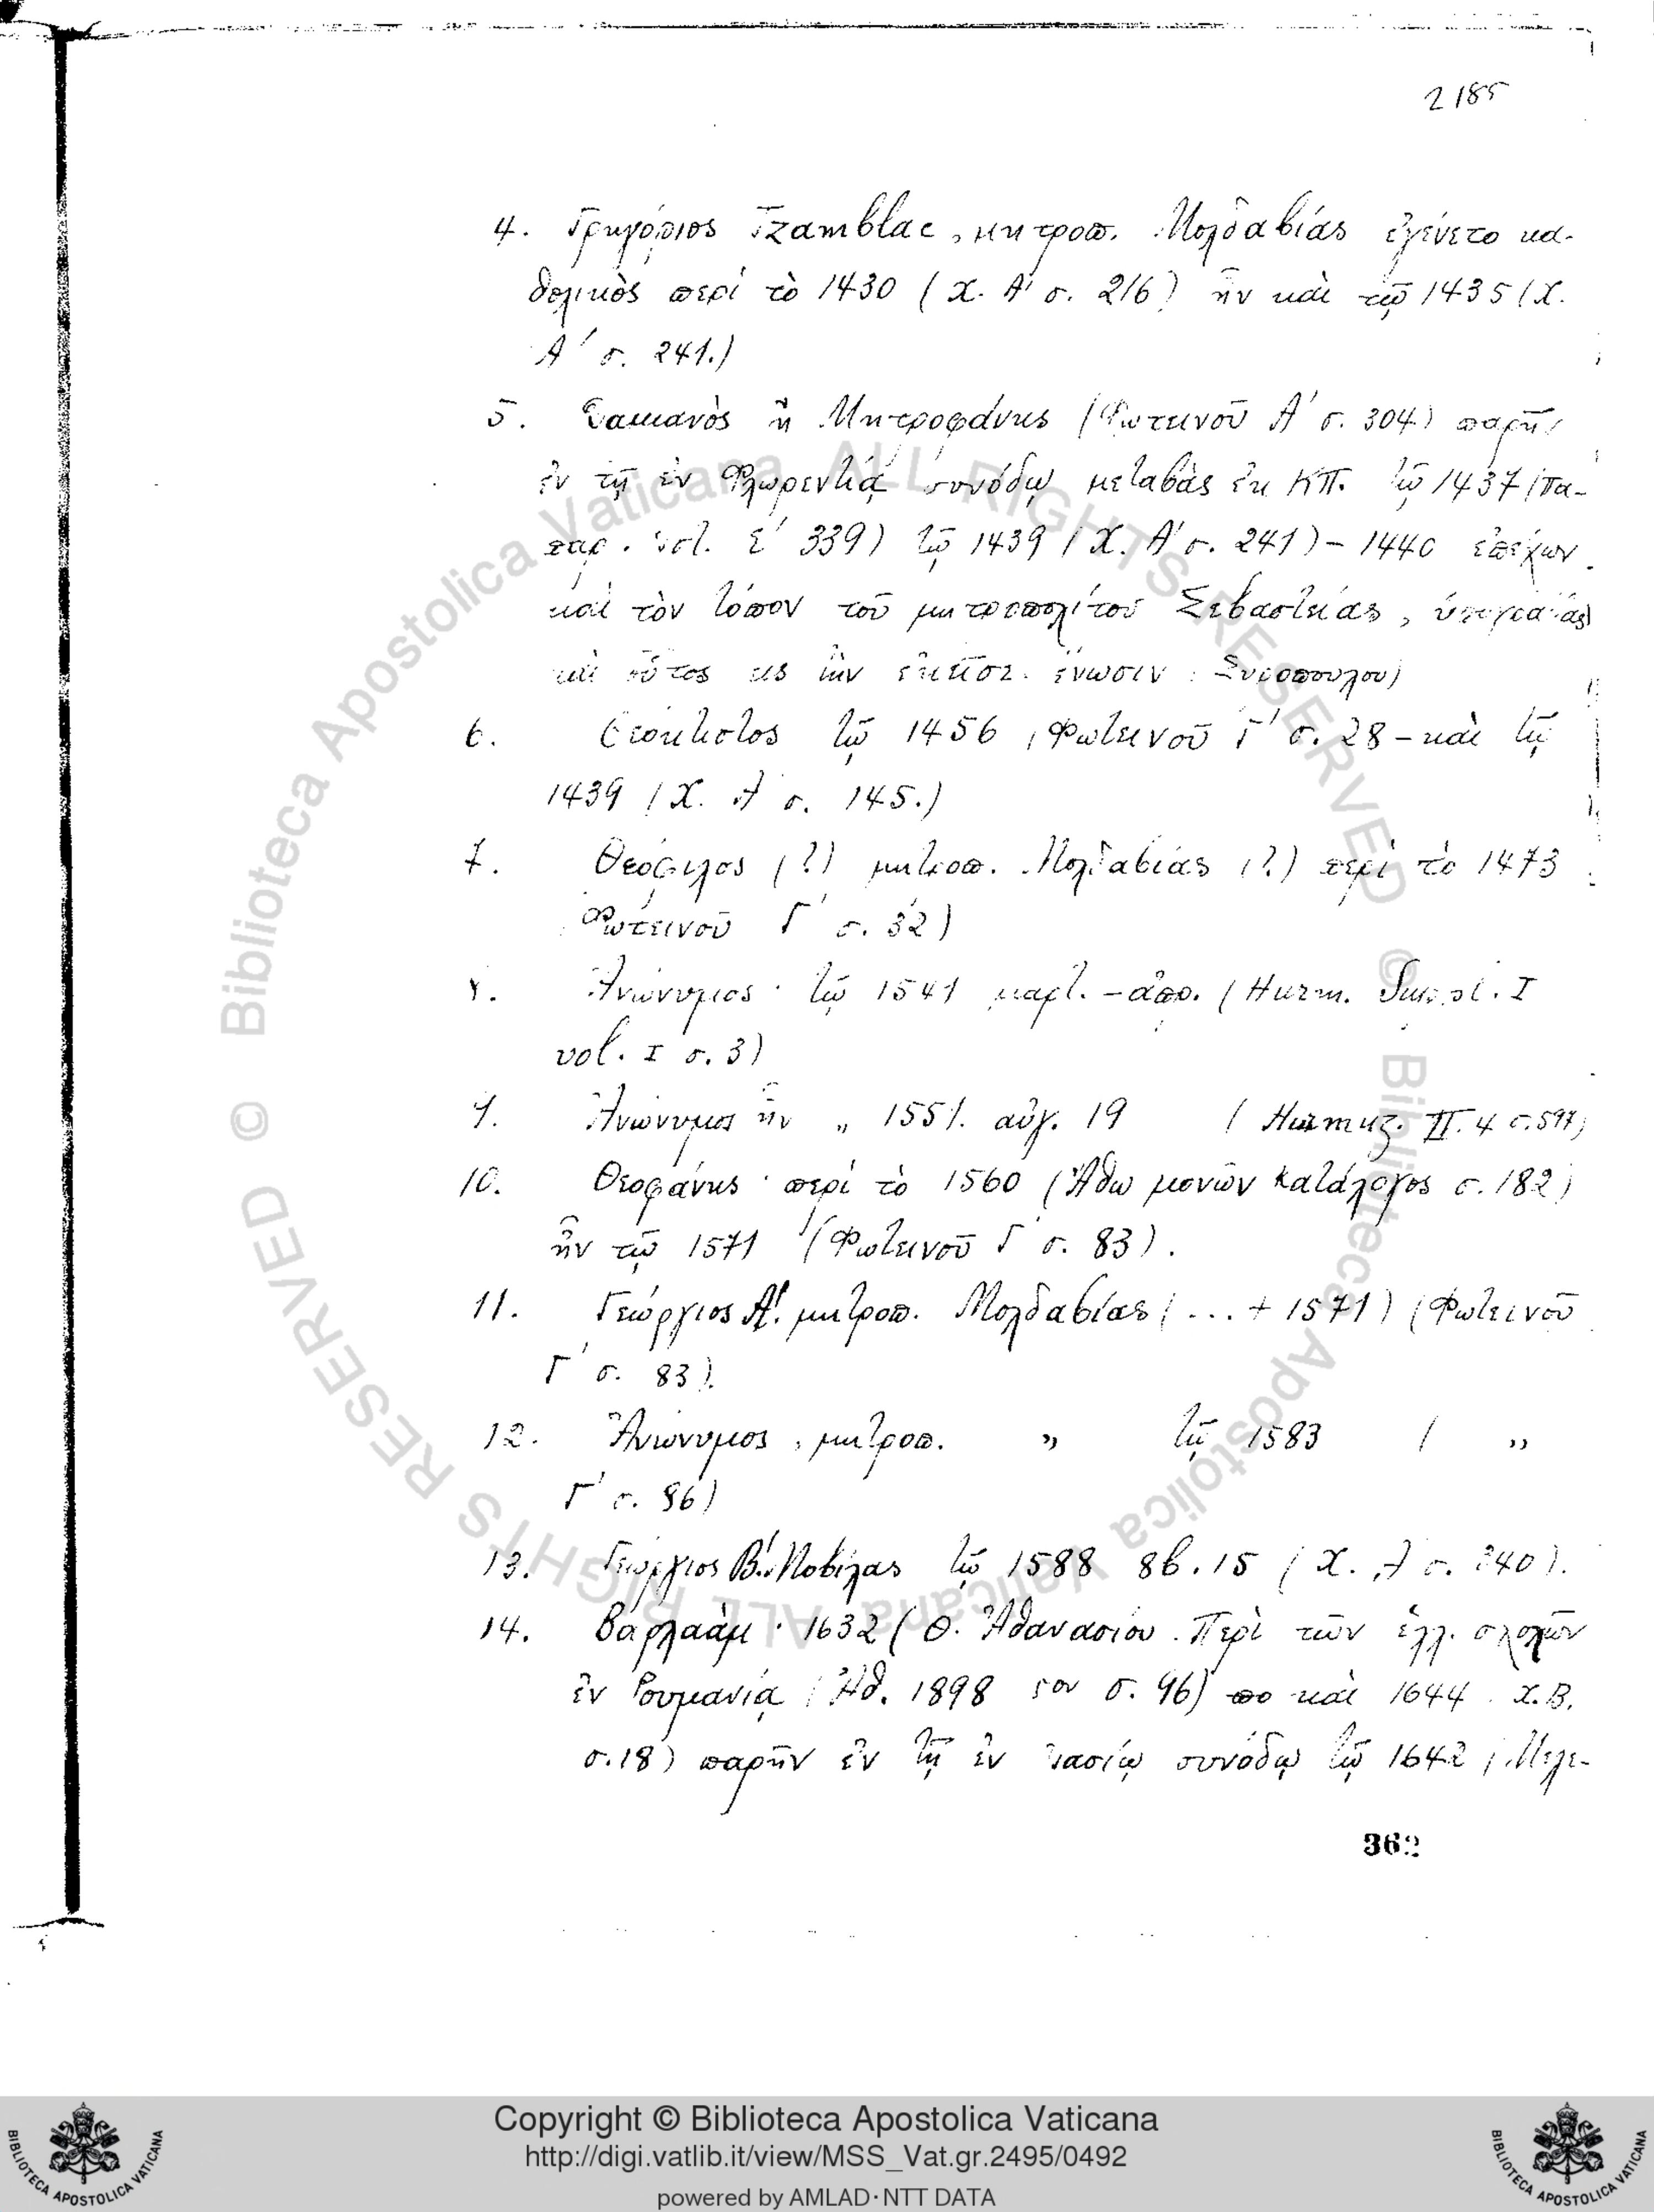 2185
4. Γρηγόριος Tzamblac, μητροπ. Μολδαβίας ἐγένετο κα-
θολικὸς περὶ τὸ 1430 (Χ. Α' σ. 216) ἦν καὶ τῷ 1435 (Χ.
Α' σ. 241.)
5. Δαμιανὸς ἢ Μητροφάνης (Φωτεινοῦ Α' σ. 304) παρῆν
ἐν τῇ ἐν Φλωρεντίᾳ συνόδῳ μεταβὰς ἐκ ΚΠ. τῷ 1437 (Πα-
339) τῷ 1439 (Χ. Α' σ. 241) - 1440 ἐπέχων
καὶ τὸν τόπον τοῦ μητροπολίτου Σεβαστείας, ὑπογράψας
καὶ οὗτος εἰς τὴν ἐκεῖσε ἕνωσιν Συροπούλου)
6. Θεόκτιστος τῷ 1456 (Φωτεινοῦ Γ' σ. 28 - καὶ τῷ
1439 (Χ. Α σ. 145.)
7. Θεόφιλος (?) μητροπ. Μολδαβίας (?) περὶ τὸ 1473
Φωτεινοῦ Γ' σ. 32)
8. Ἀνώνυμος· τῷ 1541 μαρτ. - ἀπρ. (Hurm. Suppl. I
vol. I σ. 3)
9. Ἀνώνυμος ἦν „ 1551. αὐγ. 19 (Hurmuz. II. 4 σ. 597)
10. Θεοφάνης· περὶ τὸ 1560 (Ἄθω μονῶν κατάλογος σ. 182)
ἦν τῷ 1571 (Φωτεινοῦ Γ' σ. 83).
11. Γεώργιος Α'. μητροπ. Μολδαβίας (... + 1571) (Φωτεινοῦ
Γ' σ. 83).
12. Ἀνώνυμος, μητροπ. „ τῷ 1583 ( „
Γ' σ. 96)
13. Γεώργιος Β'. Μοβίλας τῷ 1588 8β. 15 (Χ. Α σ. 240).
14. Βαρλαὰμ· 1632 (Θ. Ἀθανασίου. Περὶ τῶν ἑλλ. σχολῶν
ἐν Ρουμανίᾳ (Ἀθ. 1898 σ. 96) καὶ 1644 Χ. Β.
σ. 18) παρῆν ἐν τῇ ἐν Ἰασίῳ συνόδῳ τῷ 1642 (Μελε-
362
© Biblioteca Apostolica Vaticana ALL RIGHTS RESERVED © Biblioteca Apostolica Vaticana ALL RIGHTS RESERVED
Copyright © Biblioteca Apostolica Vaticana
http://digi.vatlib.it/view/MSS_Vat.gr.2495/0492
powered by AMLAD·NTT DATA
BIBLIOTECA APOSTOLICA VATICANA
BIBLIOTECA APOSTOLICA VATICANA